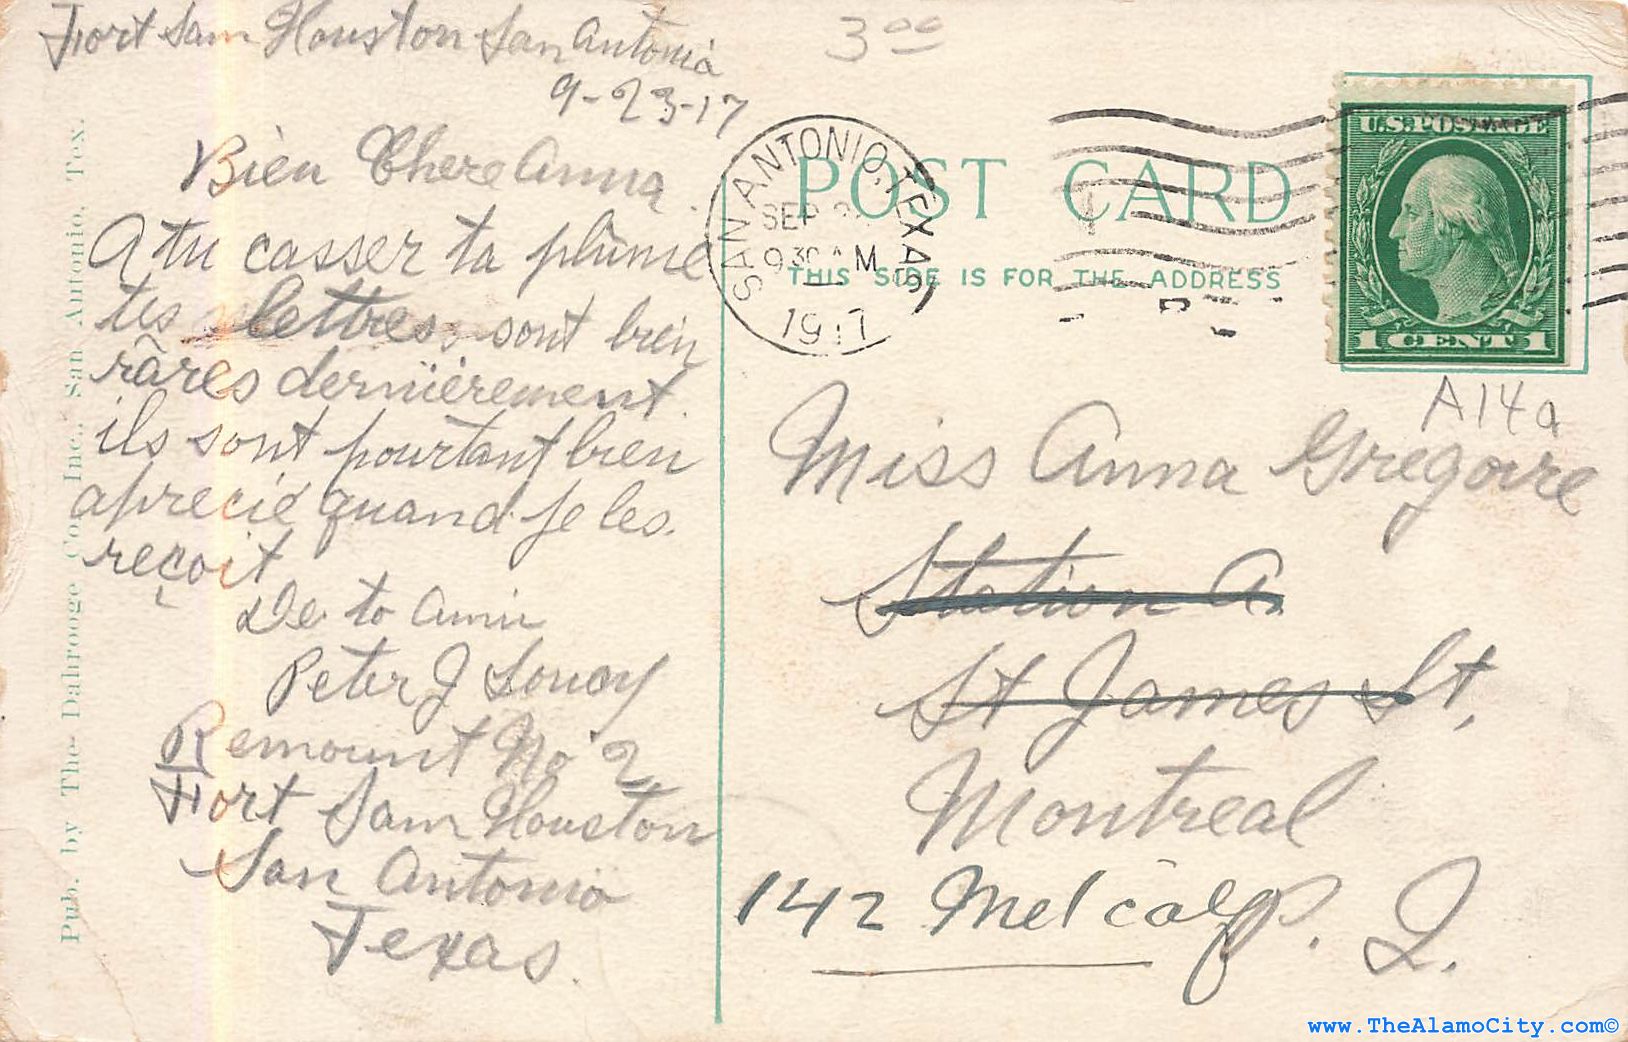 Fort Sam Houston San Antonio
9-23-17
Bien Chere Anna
A tu casser ta plume
tes lettres sont bien
râres dernièrement
ils sont pourtant bien
aprecié quand je les
reçoit
De to Amie
Peter J Soucy
Remount No 2
Fort Sam Houston
San Antonio
Texas.
Pub. by The Dahrooge Co., Inc., San Antonio, Tex.
3 00
SAN ANTONIO, TEXAS
SEP
930 AM
1917
POST CARD
THIS SIDE IS FOR THE ADDRESS
U.S. POSTAGE
1 CENT 1
A14a
Miss Anna Gregoire
Station A.
St James St,
Montreal
142 Metcalf P. Q.
www.TheAlamoCity.com©